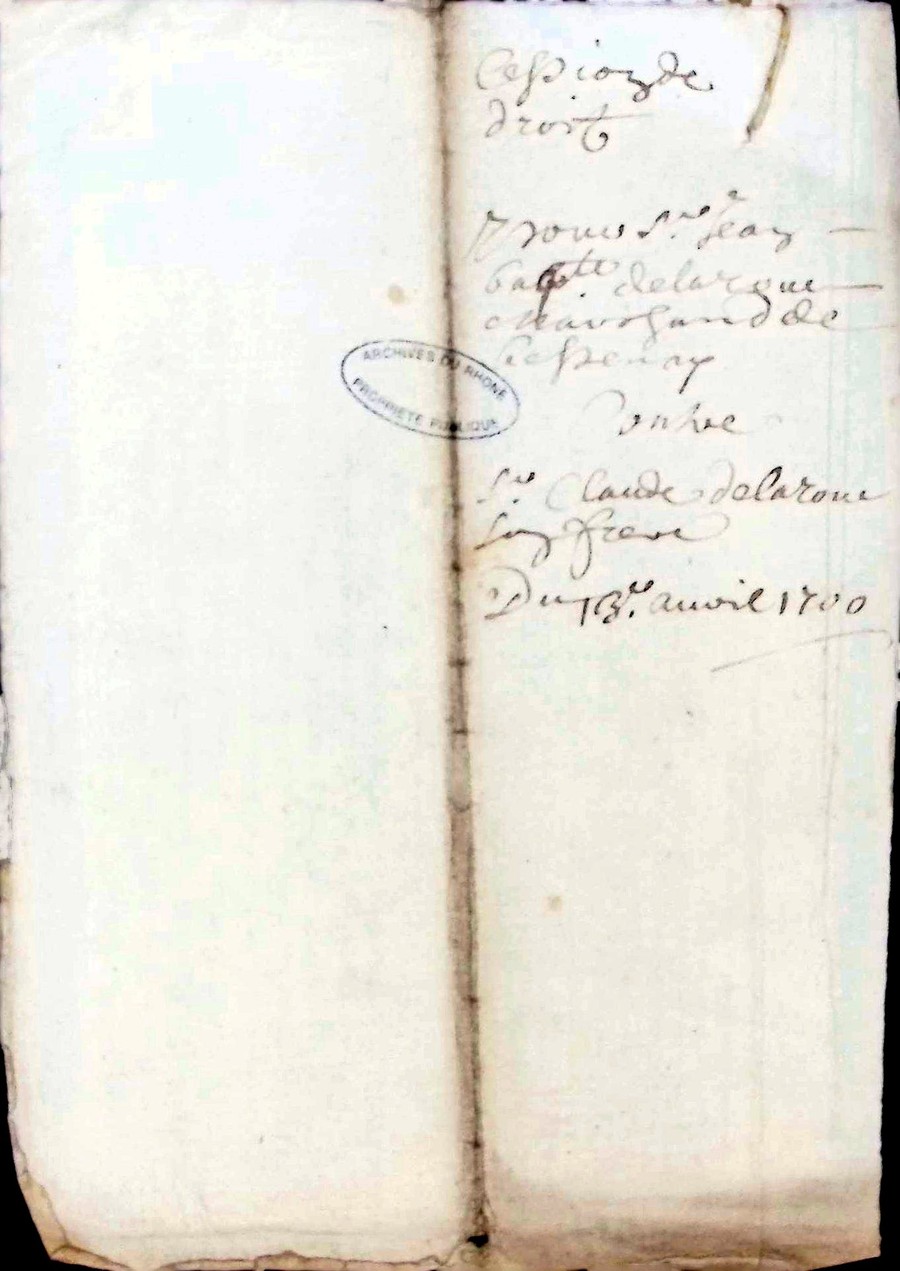 Cession de
droit
Pour Sr. Jean
baptte delaroue
marchand de
ARCHIVES DU RHONE
PROPRIETE PUBLIQUE
Contre
Sr. Claude delaroue
son frere
Du 13e. auril 1700